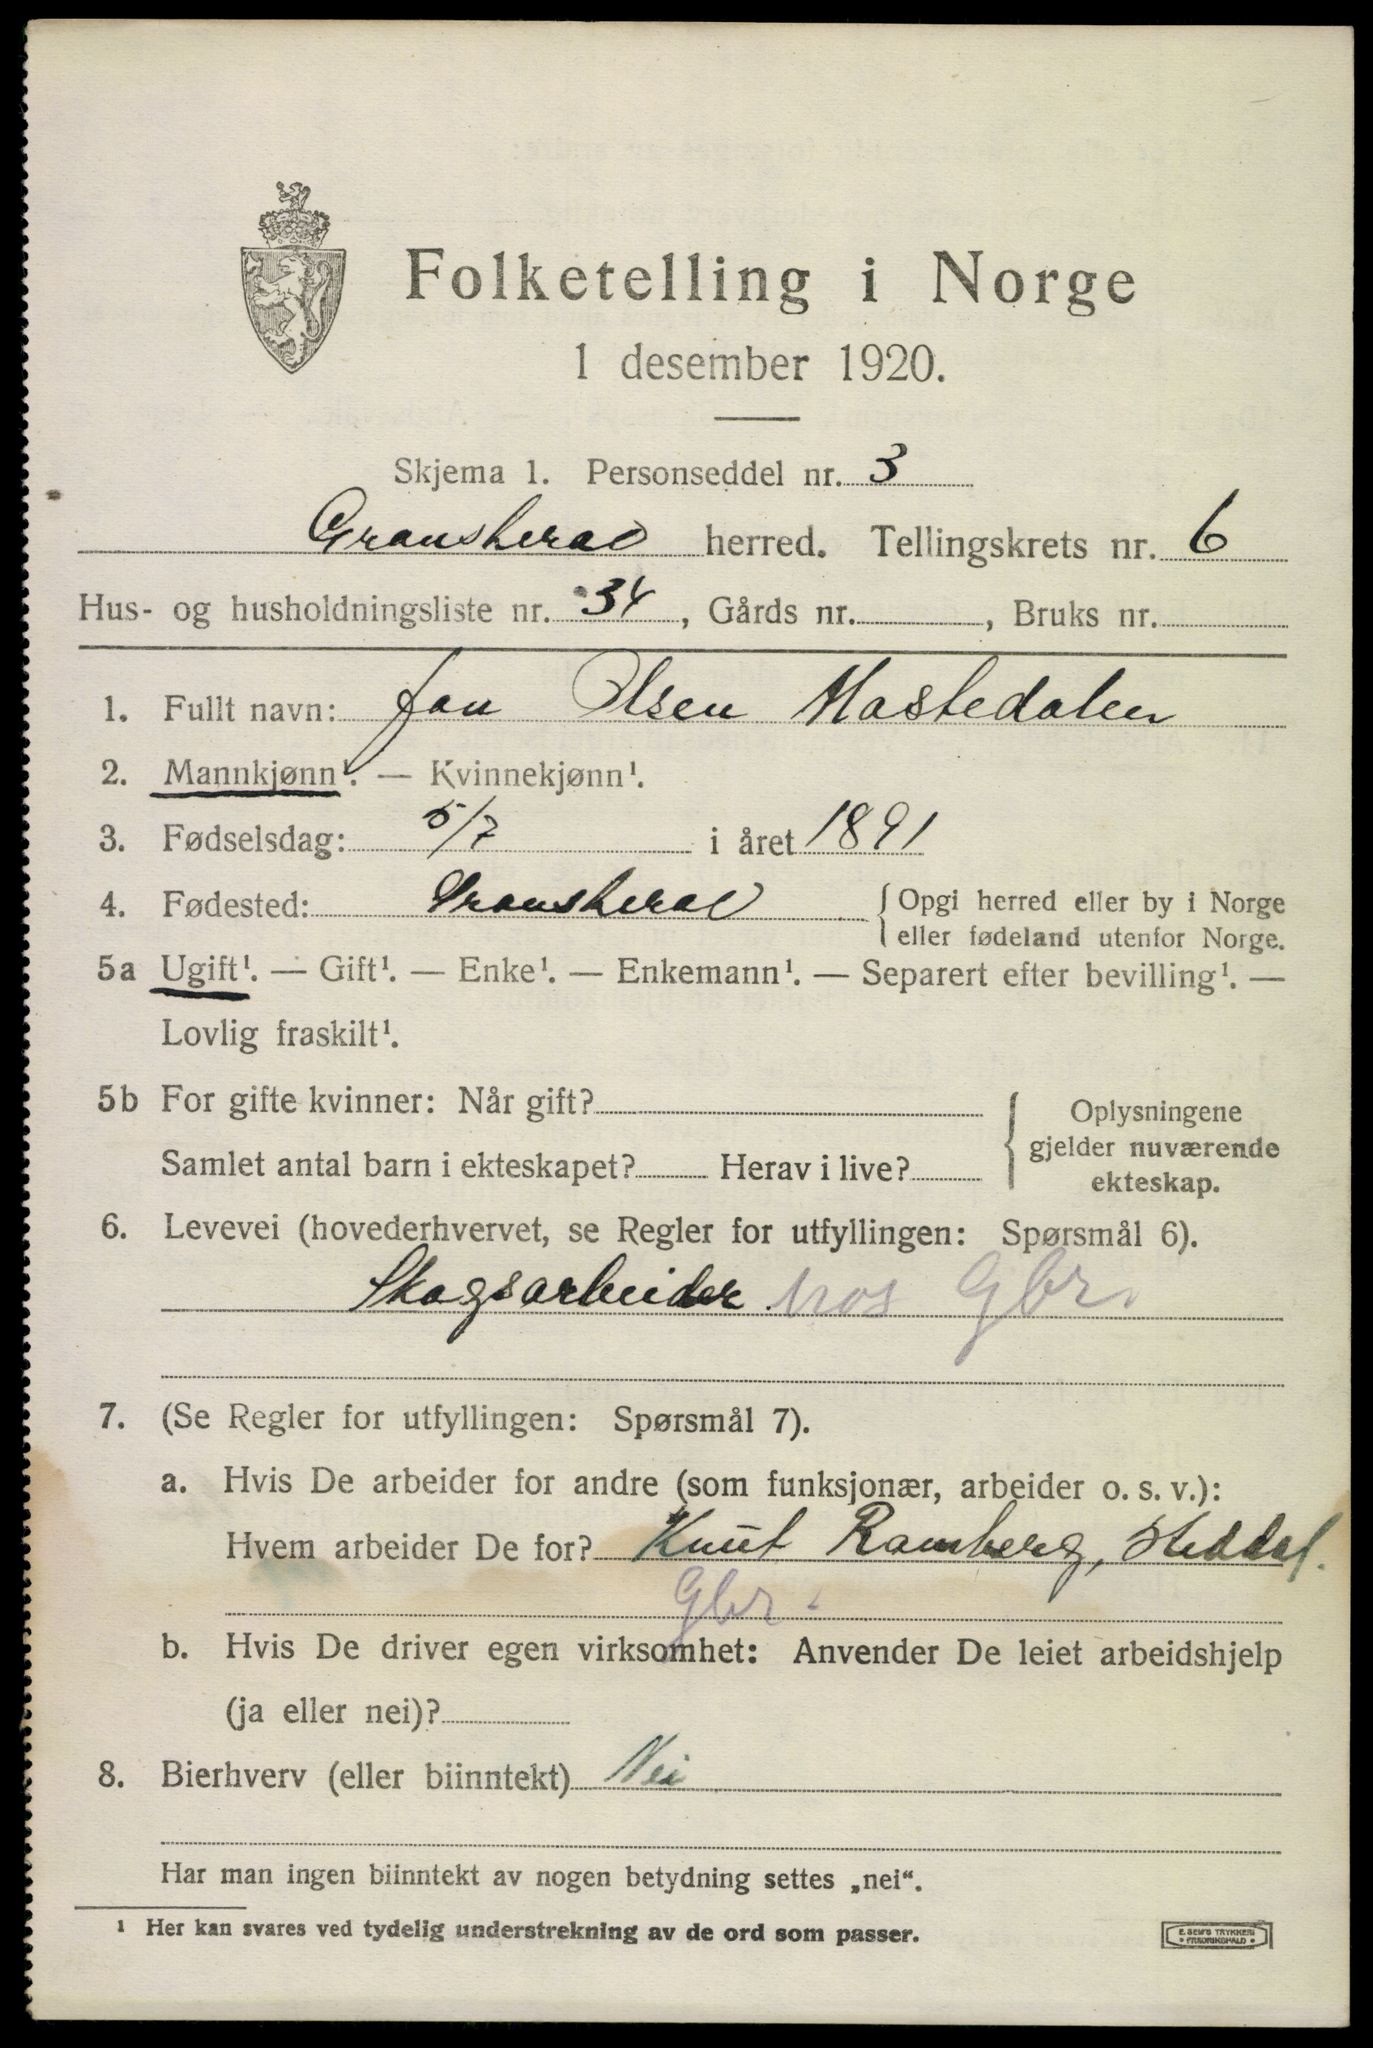 Folketelling i Norge
1 desember 1920.
Skjema 1. Personseddel nr. 3
Gransherad herred. Tellingskrets nr. 6
Hus- og husholdningsliste nr. 34, Gårds nr. , Bruks nr.
1. Fullt navn: Jan Olsen Mastedalen
2. Mannkjønn¹. — Kvinnekjønn¹.
3. Fødselsdag: 5/7 i året 1891
4. Fødested: Gransherad {Opgi herred eller by i Norge
eller fødeland utenfor Norge.
5a Ugift¹. — Gift¹. — Enke¹. — Enkemann¹. — Separert efter bevilling¹. —
Lovlig fraskilt¹.
5b For gifte kvinner: Når gift?
Samlet antal barn i ekteskapet? Herav i live?
Oplysningene
gjelder nuværende
ekteskap.
6. Levevei (hovederhvervet, se Regler for utfyllingen: Spørsmål 6).
Skogsarbeider hos Gbr.
7. (Se Regler for utfyllingen: Spørsmål 7).
a. Hvis De arbeider for andre (som funksjonær, arbeider o. s. v.):
Hvem arbeider De for? Knut Ramberg, Heddal.
Gbr.
b. Hvis De driver egen virksomhet: Anvender De leiet arbeidshjelp
(ja eller nei)?
8. Bierhverv (eller biinntekt) Nei
Har man ingen biinntekt av nogen betydning settes „nei“.
¹ Her kan svares ved tydelig understrekning av de ord som passer.
E. SEM'S TRYKKERI
• FREDRIKSHALD •